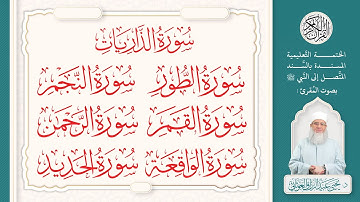 سُورَةُ الذَّارِيَات
سُورَةُ الطُّورِ سُورَةُ النَّجْمِ
سُورَةُ القَمَرِ سُورَةُ الرَّحْمَٰن
سُورَةُ الوَاقِعَة سُورَةُ الحَدِيد
القرآن الكريم
الختمة التعليمية
المسندة بالسند
المتصل إلى النبي ﷺ
بصوت المقرئ: